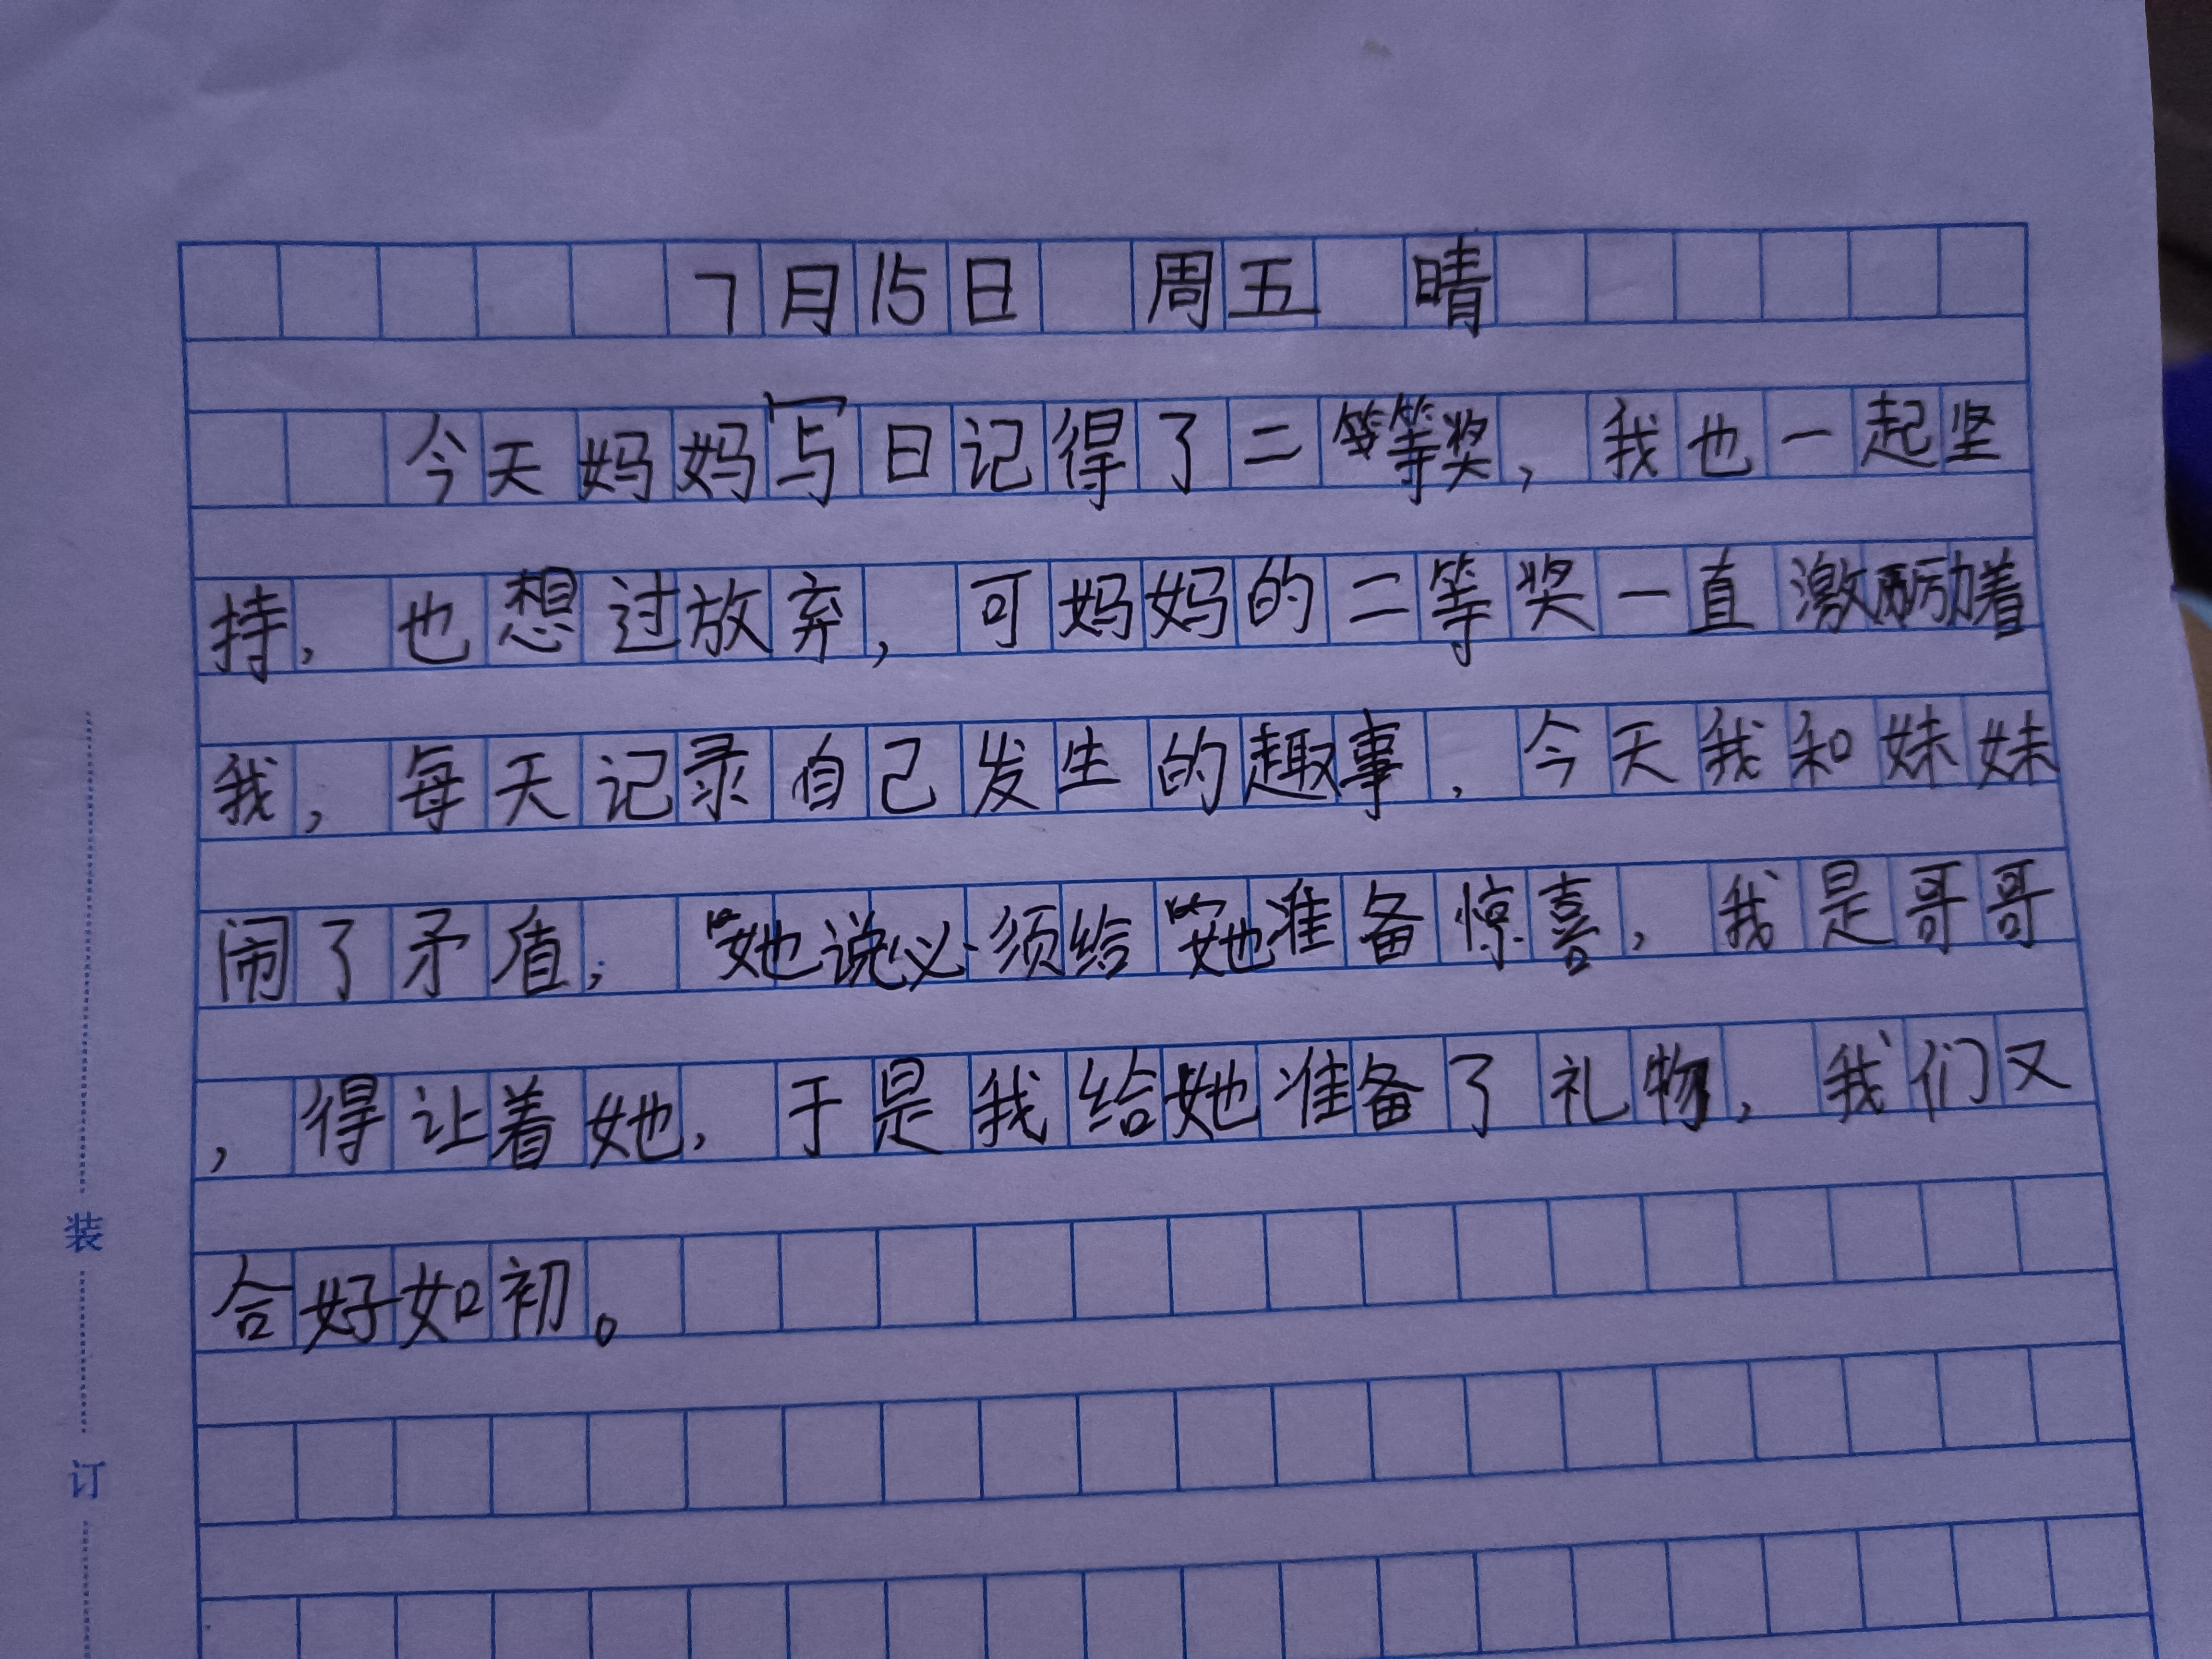 7月15日 周五 晴
今天妈妈写日记得了二等奖，我也一起坚
持，也想过放弃，可妈妈的二等奖一直激励着
我，每天记录自己发生的趣事，今天我和妹妹
闹了矛盾，她说必须给她准备惊喜，我是哥哥
，得让着她，于是我给她准备了礼物，我们又
合好如初。
装
订